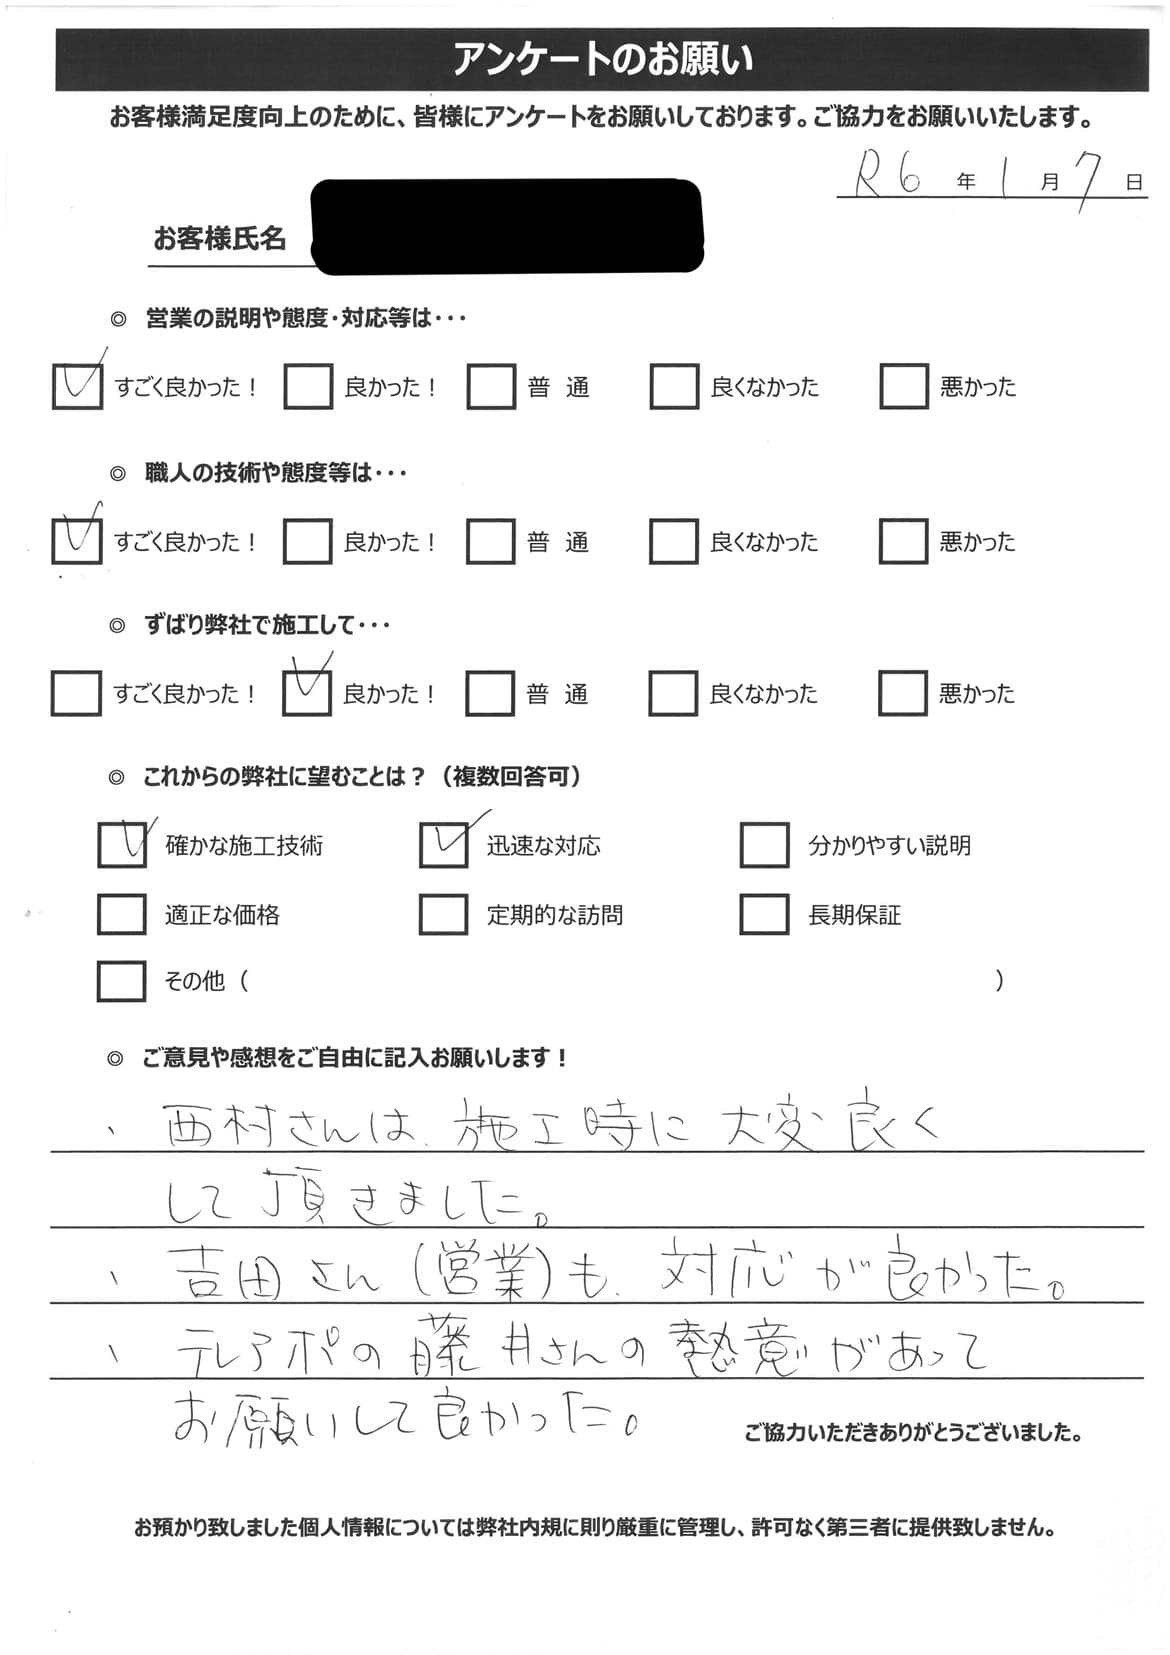 アンケートのお願い
お客様満足度向上のために、皆様にアンケートをお願いしております。ご協力をお願いいたします。
R6年1月7日
お客様氏名
◎ 営業の説明や態度・対応等は・・・
すごく良かった！ 良かった！ 普 通 良くなかった 悪かった
◎ 職人の技術や態度等は・・・
すごく良かった！ 良かった！ 普 通 良くなかった 悪かった
◎ ずばり弊社で施工して・・・
すごく良かった！ 良かった！ 普 通 良くなかった 悪かった
◎ これからの弊社に望むことは？（複数回答可）
確かな施工技術 迅速な対応 分かりやすい説明
適正な価格 定期的な訪問 長期保証
その他（ ）
◎ ご意見や感想をご自由に記入お願いします！
、西村さんは、施工時に大変良く
して頂きました。
、吉田さん(営業)も、対応が良かった。
、テレアポの藤井さんの熱意があって
お願いして良かった。
ご協力いただきありがとうございました。
お預かり致しました個人情報については弊社内規に則り厳重に管理し、許可なく第三者に提供致しません。